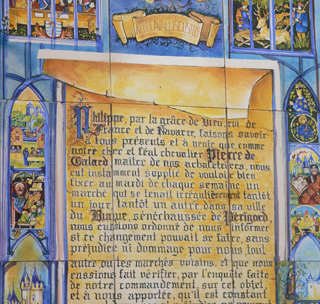 Philippe, par la grâce de Dieu, roi de
France et de Navarre, faisons savoir
à tous présents et à venir que comme
notre cher et féal chevalier Pierre de
Galard maître de nos arbalétriers, nous
eut instamment supplié de vouloir bien
fixer au mardi de chaque semaine un
marché qui se tenait irrégulièrement tantôt
un jour, tantôt un autre dans sa ville
du Bugue, sénéchaussée de Périgord,
nous eussions ordonné de nous informer
si ce changement pouvait se faire, sans
préjudice ni dommage pour nous, tout
autre ou les marchés voisins, et que nous
eussions fait vérifier, par l'enquête faite
de notre commandement, sur cet objet,
et à nous apportée, qu'il est constant